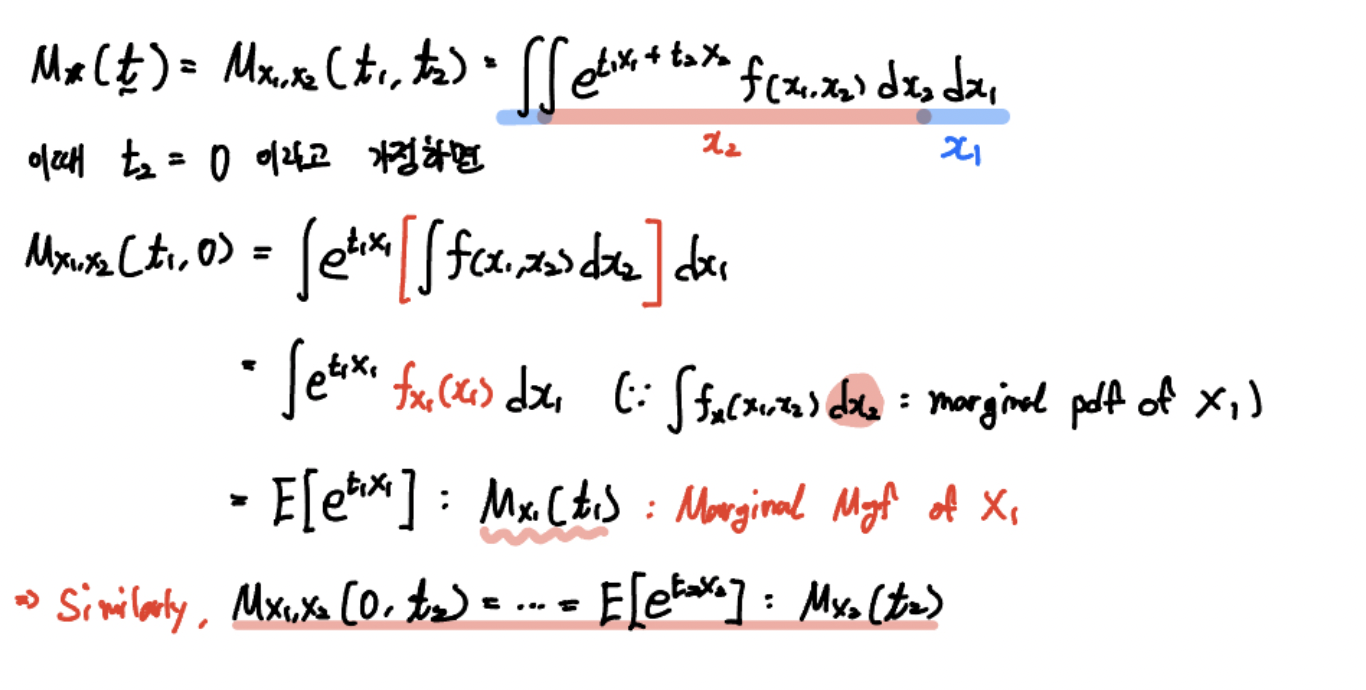 M_X(t̰) = M_{X₁,X₂}(t₁, t₂) = ∬ e^{t₁x₁ + t₂x₂} f(x₁, x₂) dx₂ dx₁
x₂ x₁
이때 t₂ = 0 이라고 가정하면
M_{X₁,X₂}(t₁, 0) = ∫ e^{t₁x₁} [ ∫ f(x₁, x₂) dx₂ ] dx₁
= ∫ e^{t₁x₁} f_{X₁}(x₁) dx₁ (∵ ∫ f_X(x₁, x₂) dx₂ : marginal pdf of X₁)
= E[e^{t₁X₁}] : M_{X₁}(t₁) : Marginal Mgf of X₁
⇒ Similarly, M_{X₁,X₂}(0, t₂) = ... = E[e^{t₂X₂}] : M_{X₂}(t₂)